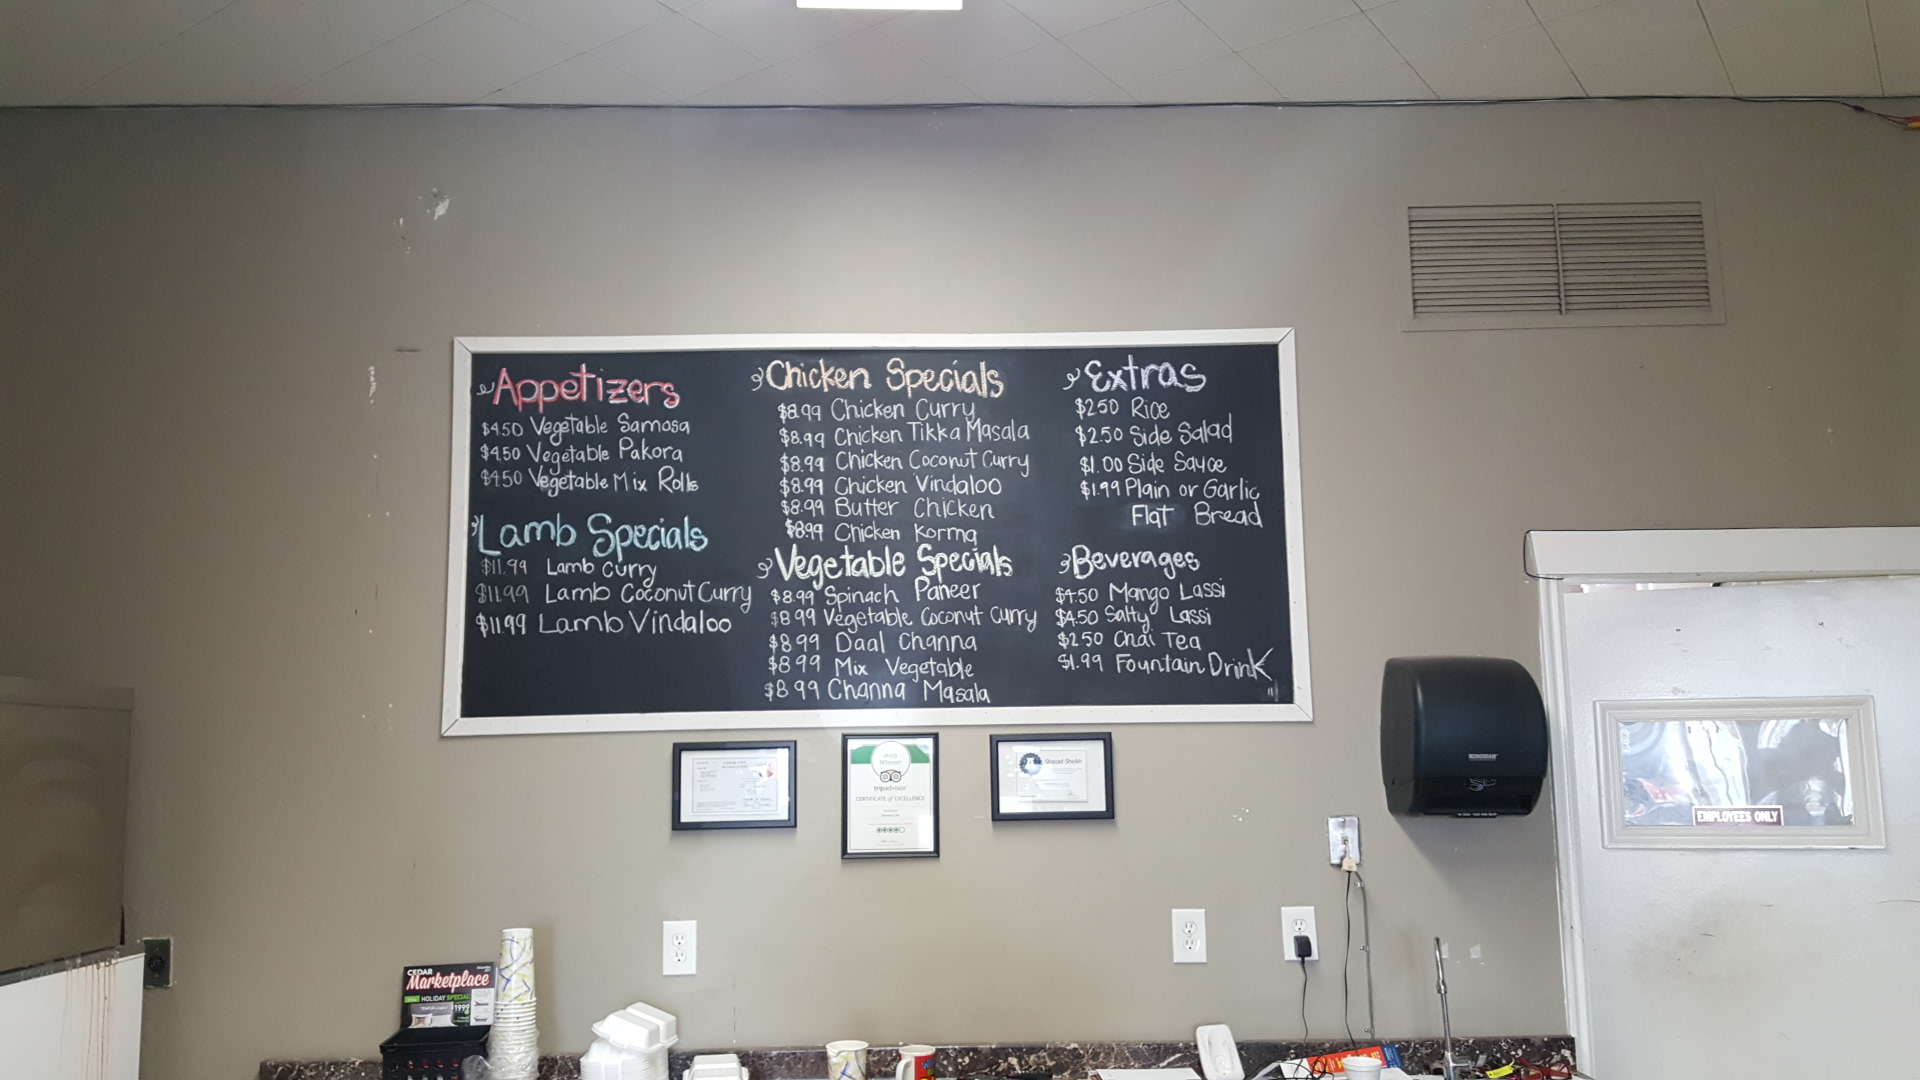 Appetizers
$4.50 Vegetable Samosa
$4.50 Vegetable Pakora
$4.50 Vegetable Mix Rolls
Lamb Specials
$11.99 Lamb Curry
$11.99 Lamb Coconut Curry
$11.99 Lamb Vindaloo
Chicken Specials
$8.99 Chicken Curry
$8.99 Chicken Tikka Masala
$8.99 Chicken Coconut Curry
$8.99 Chicken Vindaloo
$8.99 Butter Chicken
$8.99 Chicken Korma
Vegetable Specials
$8.99 Spinach Paneer
$8.99 Vegetable Coconut Curry
$8.99 Daal Channa
$8.99 Mix Vegetable
$8.99 Channa Masala
Extras
$2.50 Rice
$2.50 Side Salad
$1.00 Side Sauce
$1.99 Plain or Garlic
Flat Bread
Beverages
$4.50 Mango Lassi
$4.50 Salty Lassi
$2.50 Chai Tea
$1.99 Fountain Drink
Winner
tripadvisor
CERTIFICATE of EXCELLENCE
Shazad Sheikh
EMPLOYEES ONLY
CEDAR
Marketplace
HOLIDAY SPECIAL